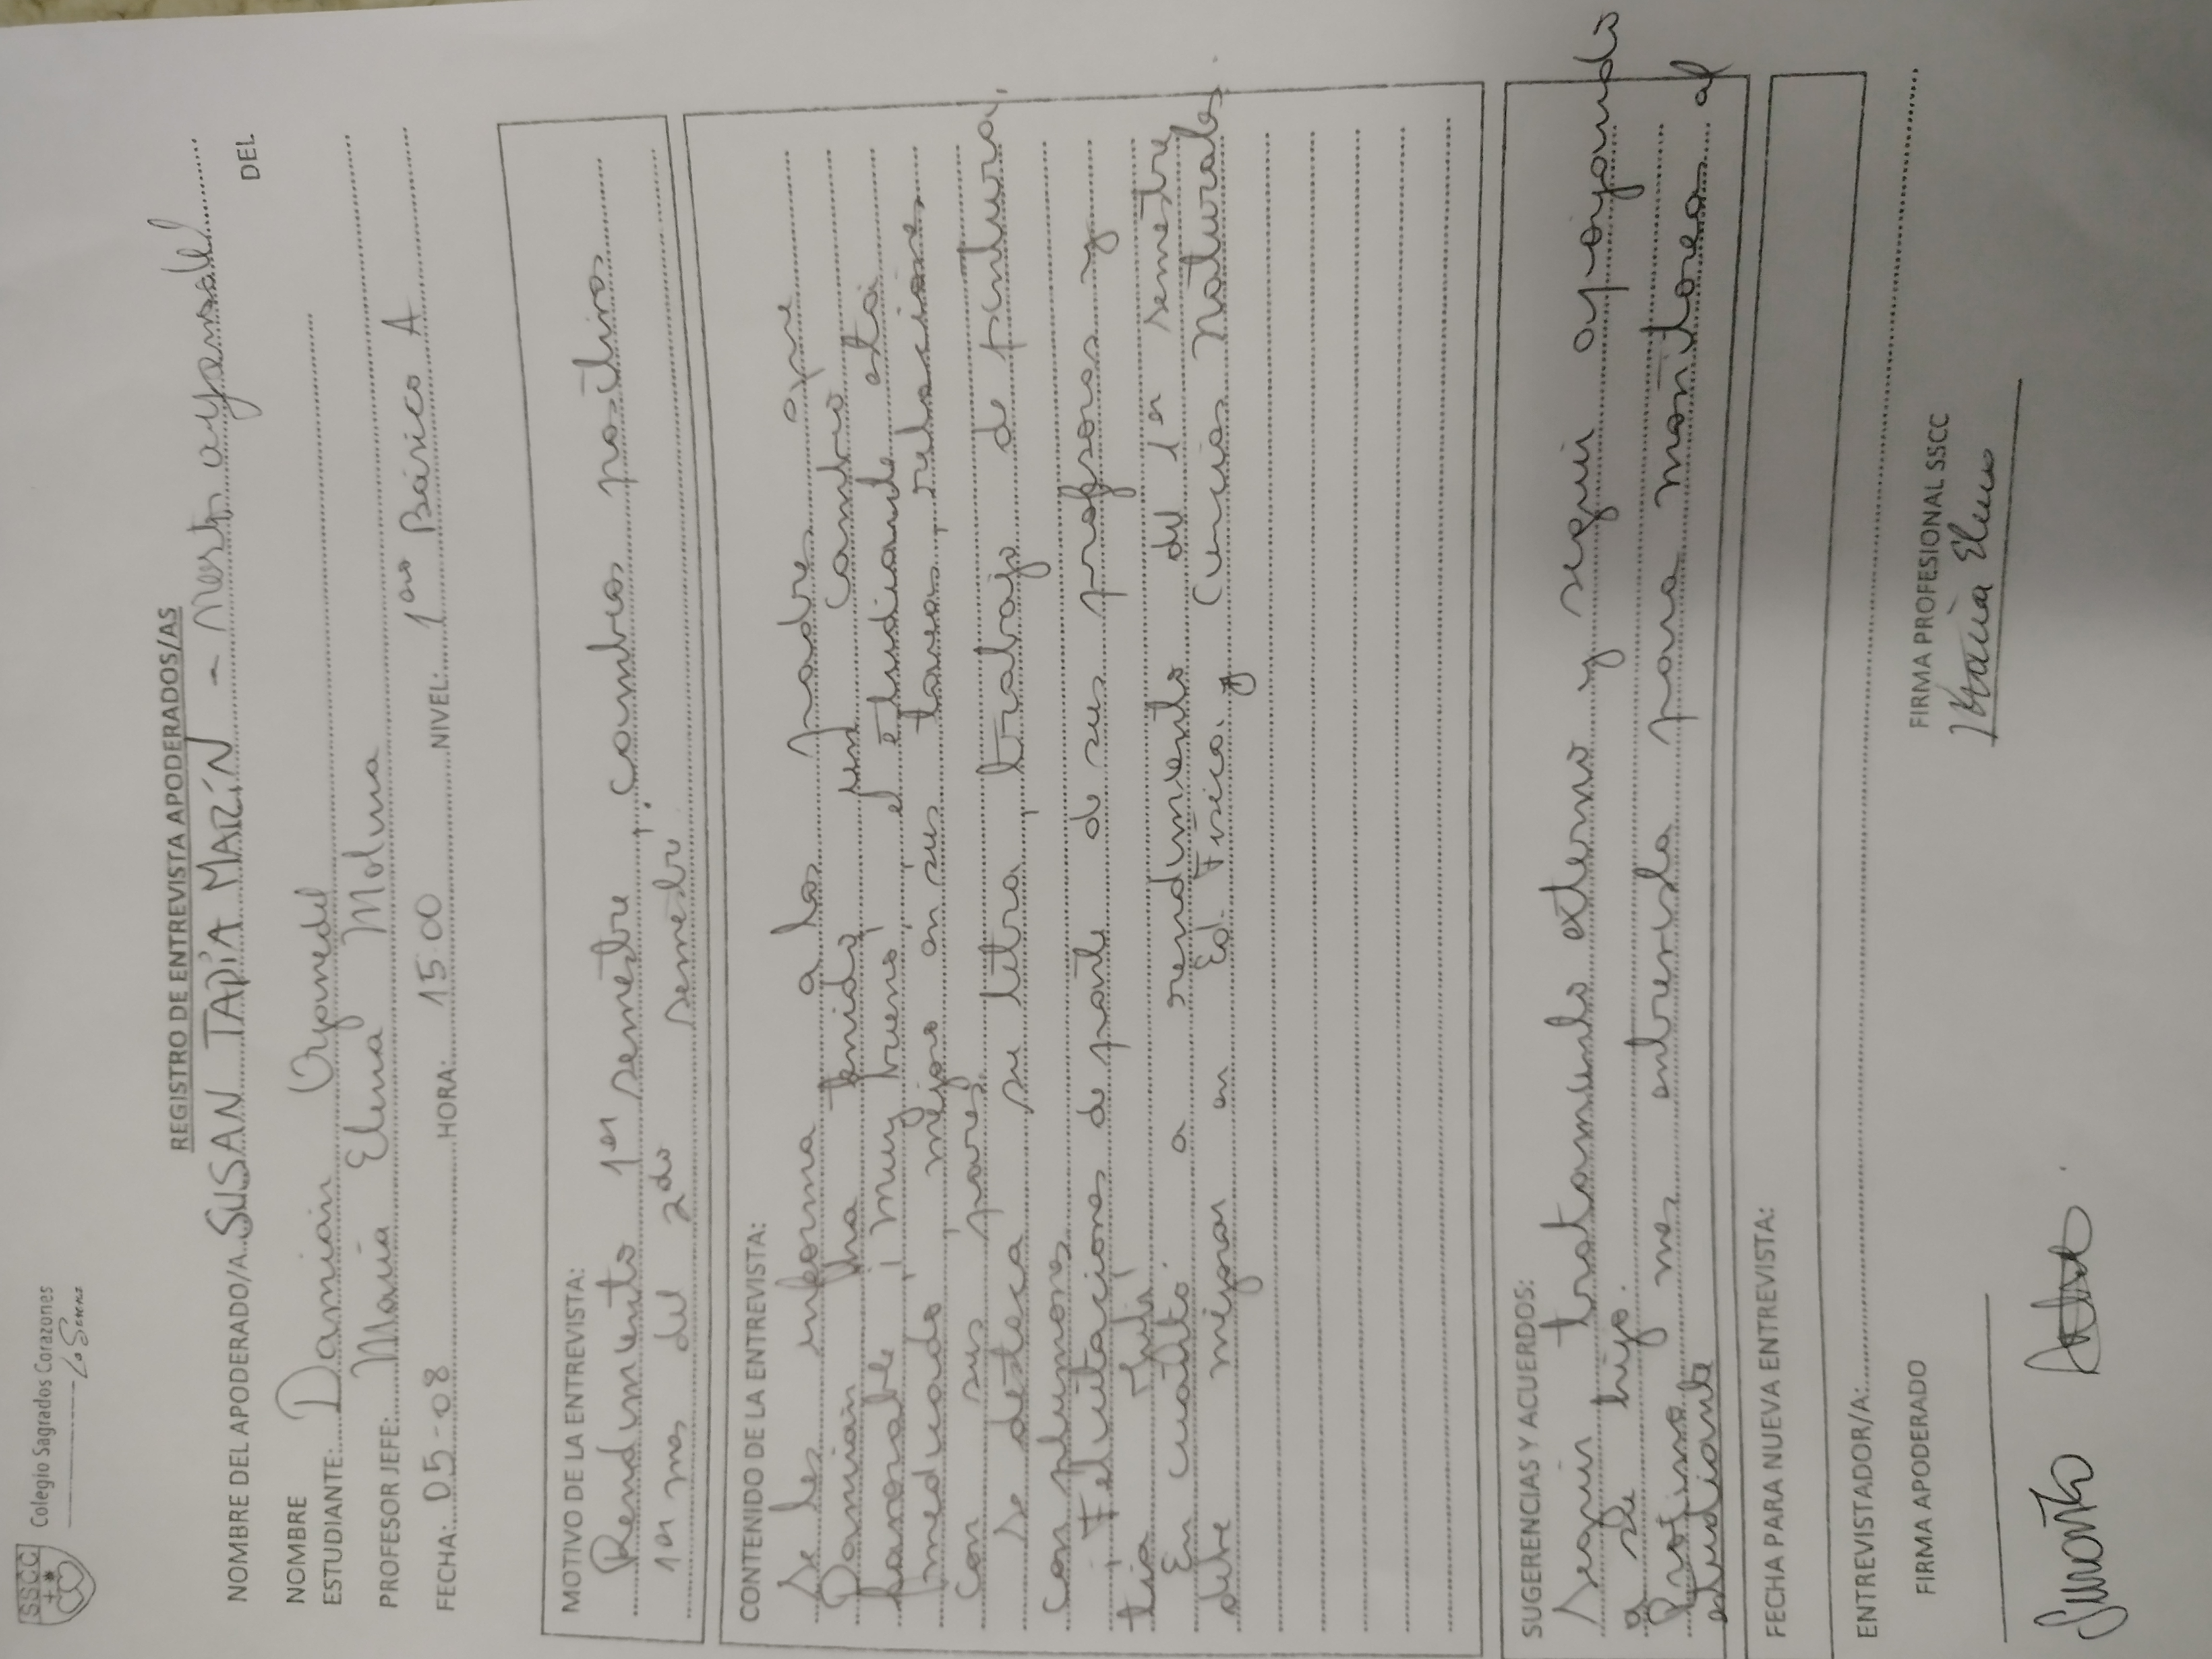 SSCC
Colegio Sagrados Corazones
La Serena
REGISTRO DE ENTREVISTA APODERADOS/AS
NOMBRE DEL APODERADO/A: SUSAN TAPIA MARÍN -
DEL
NOMBRE
ESTUDIANTE: Damián Oyanedel
PROFESOR JEFE: María Elena Molina
FECHA: 05-08 HORA: 15:00 NIVEL: 1ero Básico A
MOTIVO DE LA ENTREVISTA:
Rendimiento 1er semestre, cambios positivos
1er mes del 2do semestre
CONTENIDO DE LA ENTREVISTA:
Se les informa a los padres que
Damián ha tenido un cambio
favorable, muy bueno, el estudiante está
mejor en sus tareas, relaciones
con sus pares.
Se desteca su letra, trabajo de pintura,
con plumones.
Felicitaciones de parte de sus profesoras y
tía
En cuanto a rendimiento del 1er semestre
debe mejorar en Ed. Física y Ciencias Naturales.
SUGERENCIAS Y ACUERDOS:
Seguir tratamiento externo y seguir apoyando
a se hijo.
Próximo mes entrevista para monitorea al
estudiante
FECHA PARA NUEVA ENTREVISTA:
ENTREVISTADOR/A:
FIRMA APODERADO FIRMA PROFESIONAL SSCC
María Elena